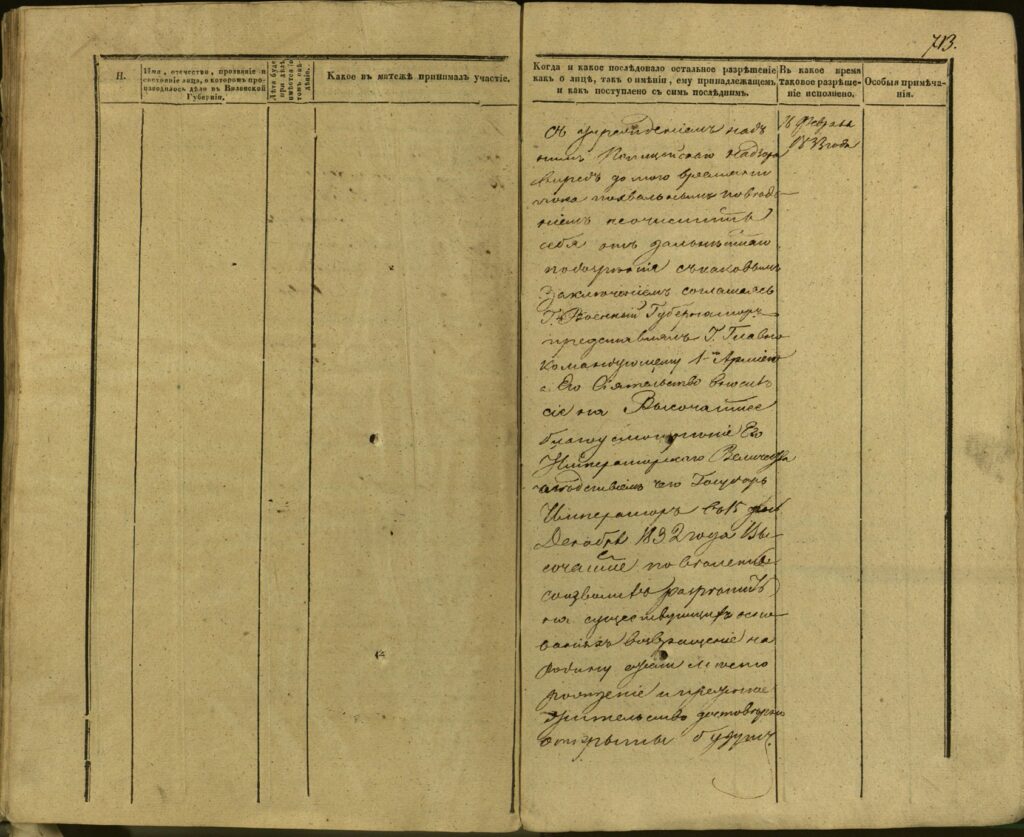 713.
Н.
Имя, отечество, прозваніе и
состояніе лица, о которомъ про-
изводилось дѣло въ Виленской
Губерніи.
Какое въ мятежѣ принималъ участіе.
Когда и какое послѣдовало остальное разрѣшеніе
какъ о лицѣ, такъ о имѣніи, ему принадлежащемъ
и какъ поступлено съ симъ послѣднимъ.
Въ какое время
таковое разрѣше-
ніе исполнено.
Особыя примѣча-
нія.
съ учрежденіемъ надъ
нимъ Полицейскаго надзора
впредь до того времени
пока похвальнымъ поведе-
ніемъ неочиститъ
себя отъ дальнѣйшаго
подозрѣнія съ каковымъ
Заключеніемъ согласясь
Г. Военный Губернаторъ
представлялъ Г. Главно
командующему 1й Арміею
а Его Сіятельство
сіе на Высочайшее
благоусмотреніе Его
Императорскаго Величества
въ слѣдствіемъ чего Государь
Императоръ въ 15 день
Декабря 1832 года Вы-
сочайше повелеть
соизволилъ разрешить
на существующихъ осно-
ваніяхъ возвращеніе на
родину если место
рожденіе и прежнее
жительство достоверно
открыты будутъ
16 Февраля
1833 года